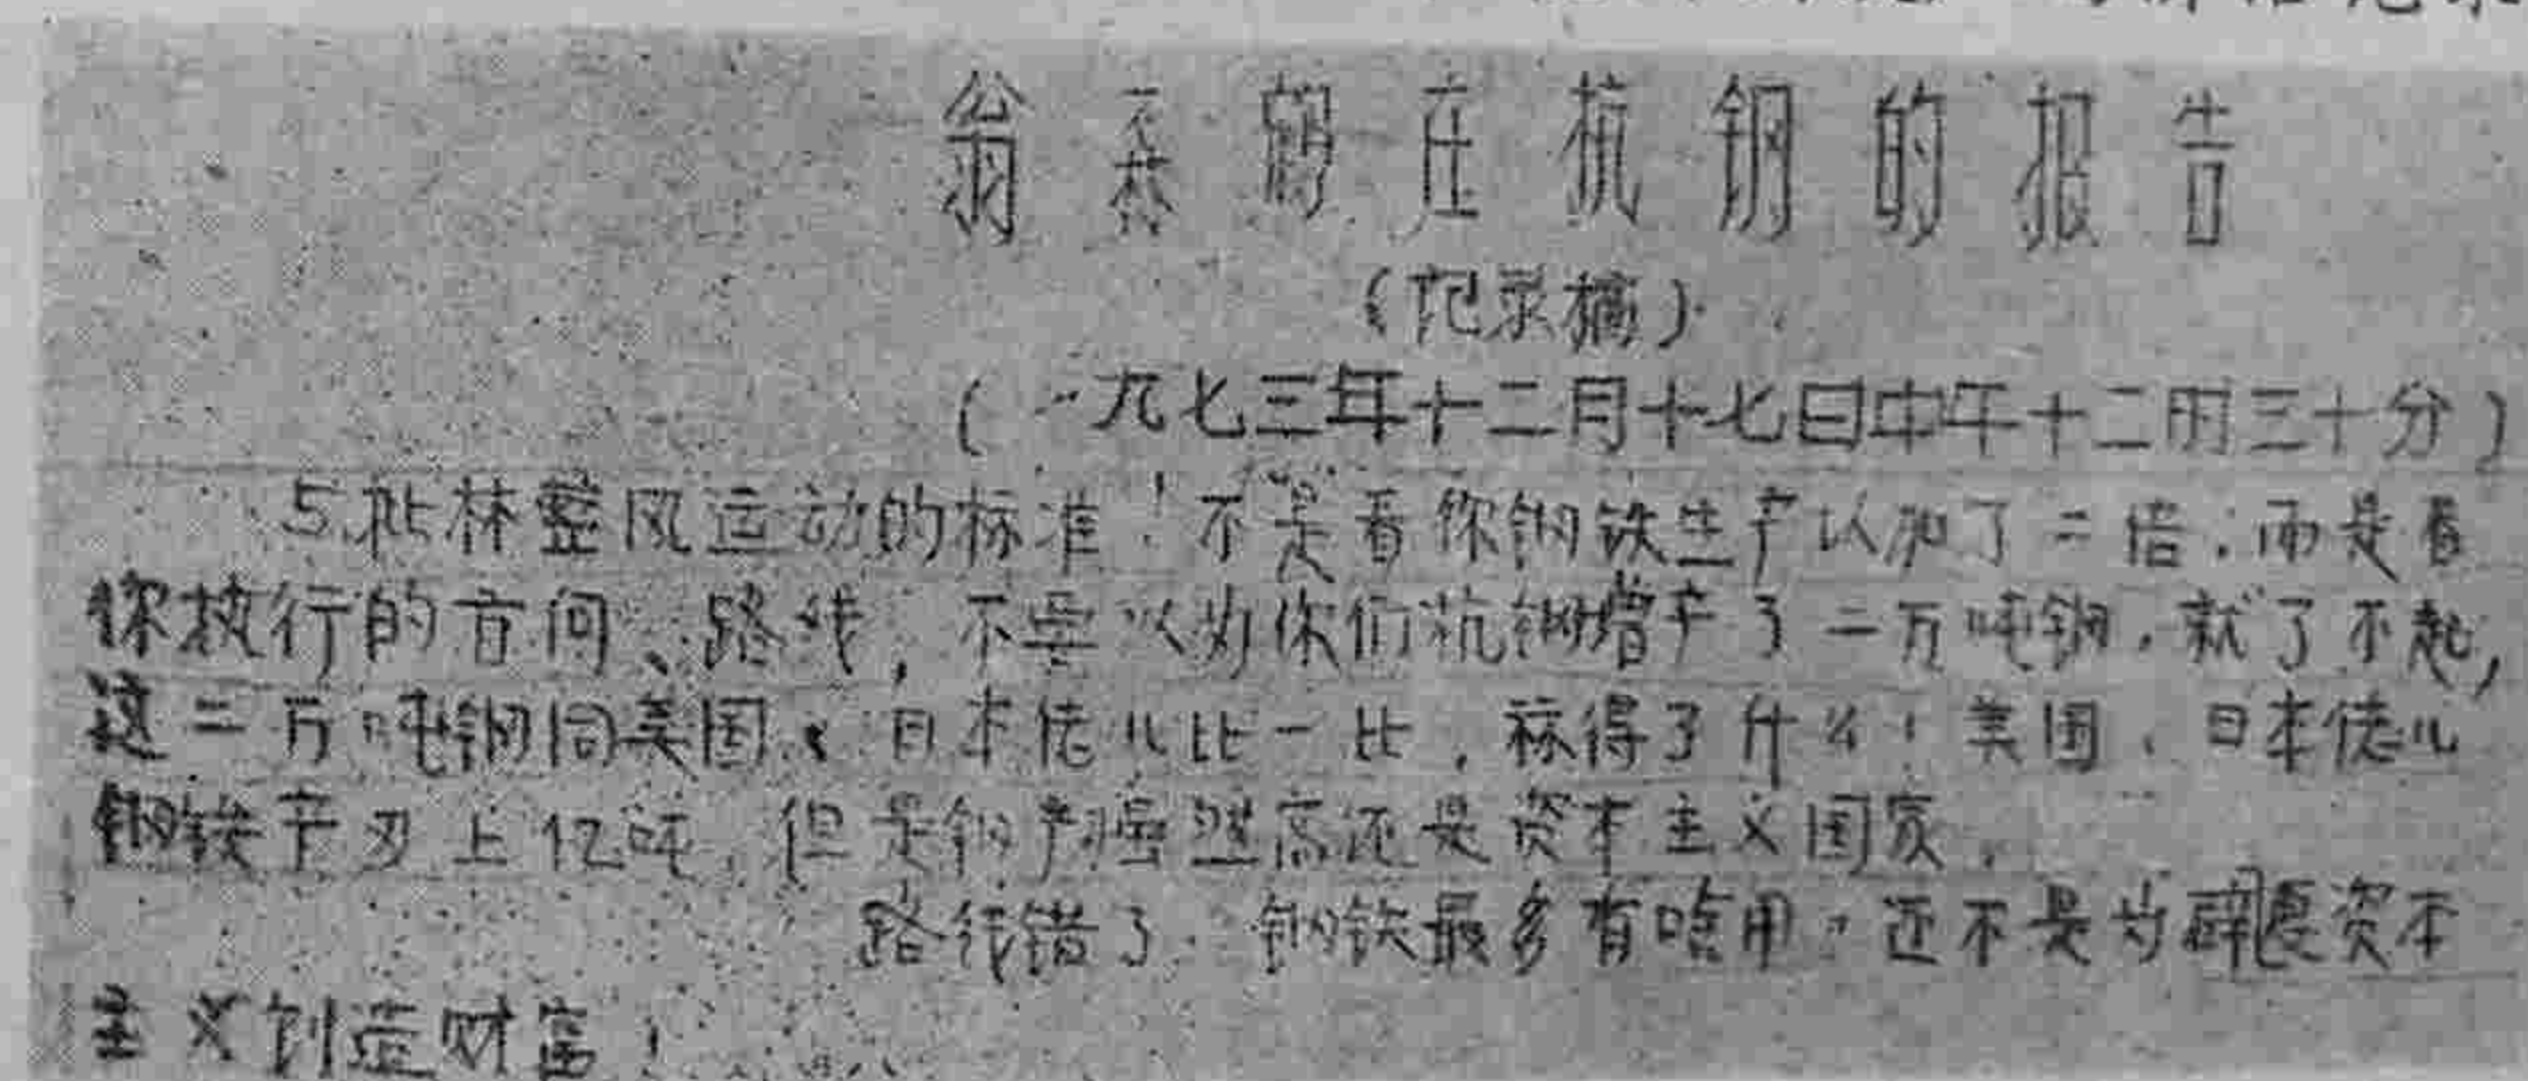 翁森鹤在杭钢的报告
(记录摘)
(一九七三年十二月十七日中午十二时三十分)
5.批林整风运动的标准!不是看你钢铁生产以加了二倍,而是看
你执行的方向、路线,不要以为你们杭钢增产了二万吨钢,就了不起,
这二万吨钢同美国、日本佬儿比一比,称得了什么!美国、日本佬儿
钢铁产 上亿吨,但是钢产 虽然高还是资本主义国家.
路线错了.钢铁最多有啥用。还不是为 资本
主义创造财富!